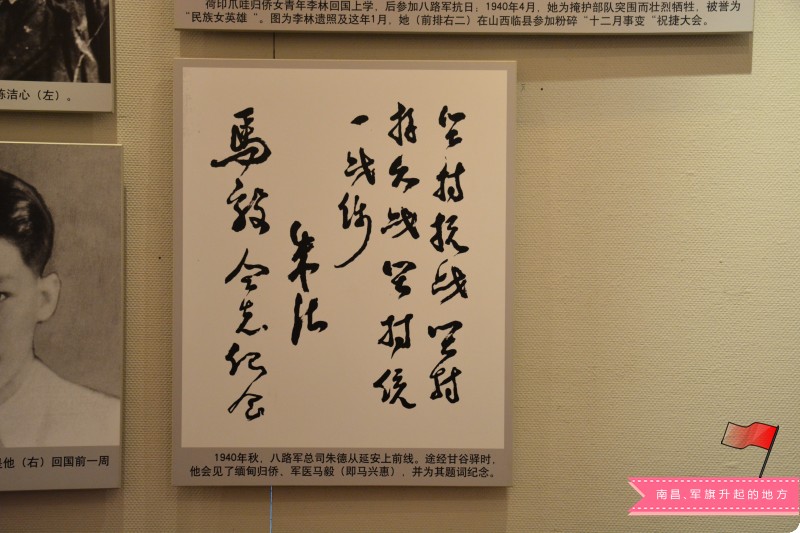 荷印爪哇归侨女青年李林回国上学,后参加八路军抗日;1940年4月,她为掩护部队突围而壮烈牺牲,被誉为
“民族女英雄”。图为李林遗照及这年1月,她(前排右二)在山西临县参加粉碎“十二月事变”祝捷大会。
洁心(左)。
坚持抗战坚持
持久战坚持统
一战线
朱德
馬毅仝志纪念
1940年秋,八路军总司朱德从延安上前线。途经甘谷驿时,
他会见了缅甸归侨,军医马毅(即马兴惠),并为其题词纪念。
是他(右)回国前一周
南昌,军旗升起的地方